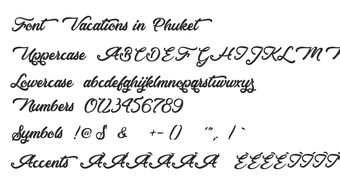 Font Vacations in Phuket
Uppercase ABCDEFGHIJKLMN
Lowercase abcdefghijklmnopqrstuvwxyz
Numbers 0123456789
Symbols !@$ & +-() '", / `
Accents ÀÁÂÃÄÅ ÈÉÊËÌÍÎÏ